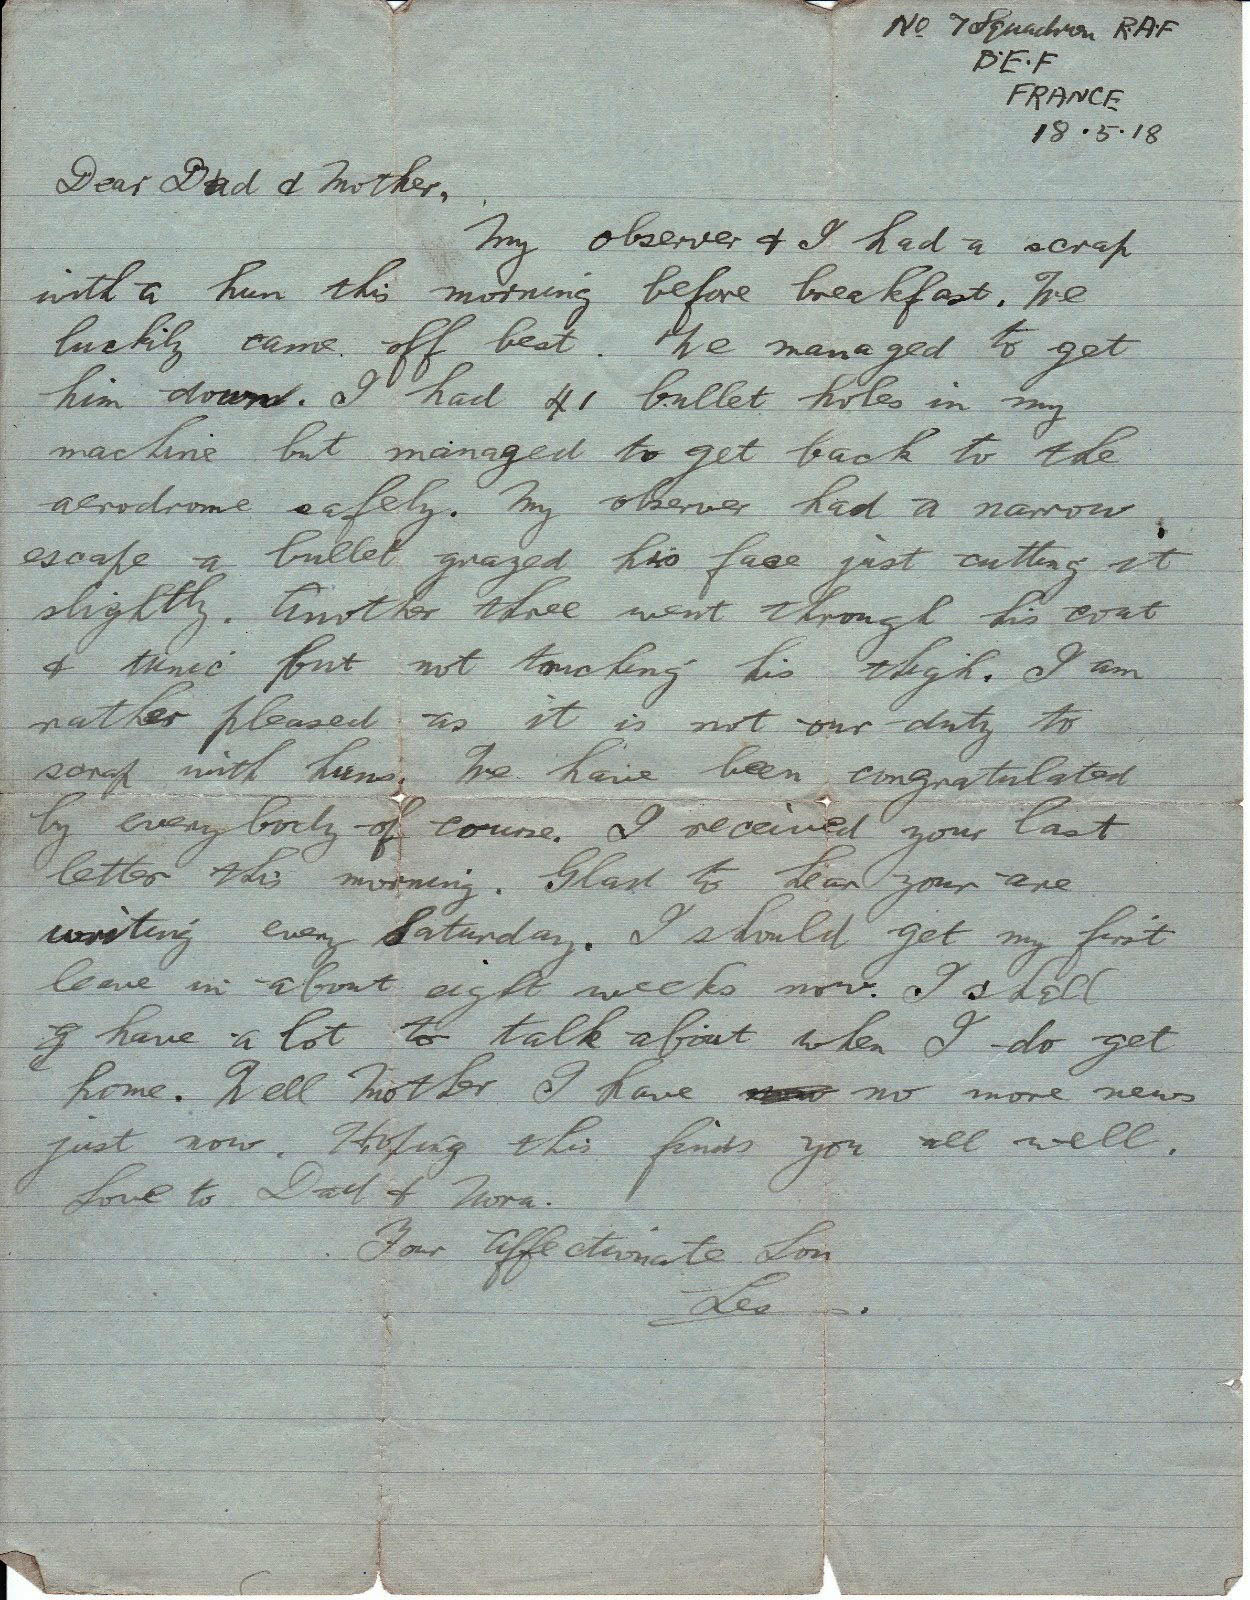 No 7 Squadron R.A.F
B.E.F
FRANCE
18.5.18
Dear Dad & Mother,
My observer & I had a scrap
with a hun this morning before breakfast. We
luckily came off best. We managed to get
him down. I had 41 bullet holes in my
machine but managed to get back to the
aerodrome safely. My observer had a narrow
escape a bullet grazed his face just cutting it
slightly. Another three went through his coat
& tunic but not touching his thigh. I am
rather pleased as it is not our duty to
scrap with huns. We have been congratulated
by everybody of course. I received your last
letter this morning. Glad to hear your are
writing every Saturday. I should get my first
leave in about eight weeks now. I shall
have a lot to talk about when I do get
home. Well Mother I have no more news
just now. Hoping this finds you all well.
Love to Dad & Nora.
Your Affectionate Son
Les